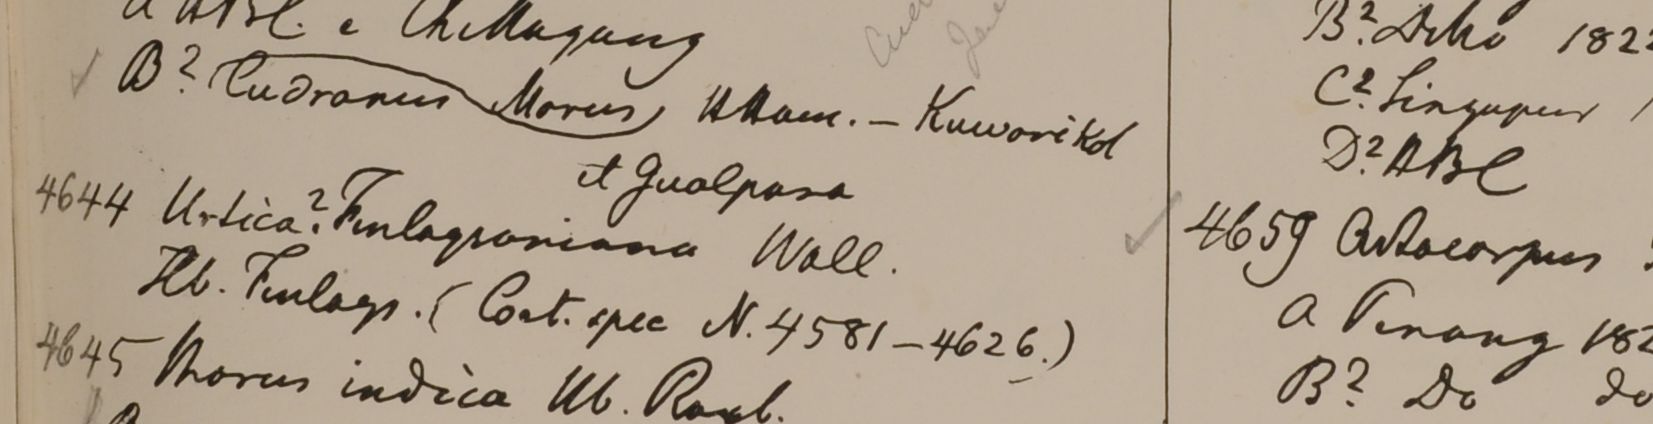 a HBC. e Chittagong
B? Cudranus Morus HHam. — Kuwarikol
et Gualpara
4644 Urtica? Finlaysoniana Wall.
Hb. Finlays. (Cont. spec N. 4581–4626.)
4645 Morus indica Hb. Roxb.
B? Ditto 182
C? Singapur
D? HBC
4659 Artocarpus
a Penang 182
B? Do do